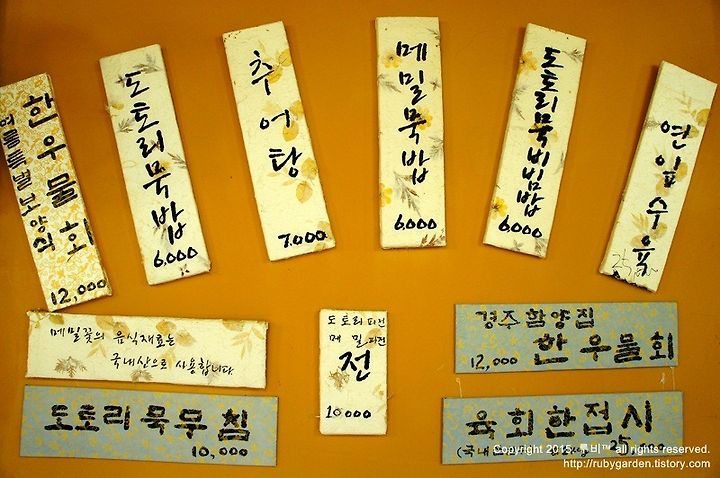 한우물회
여름특별보양식
12,000
도토리묵밥
6,000
추어탕
7,000
메밀묵밥
6,000
도토리묵비빔밥
6,000
연잎수육
메밀꽃의 음식재료는
국내산으로 사용합니다
도토리묵무침
10,000
도토리파전
메밀파전
전
10000
경주함양집
12,000 한우물회
육회한접시
25,000
Copyright 2015. 루비™ all rights reserved.
http://rubygarden.tistory.com